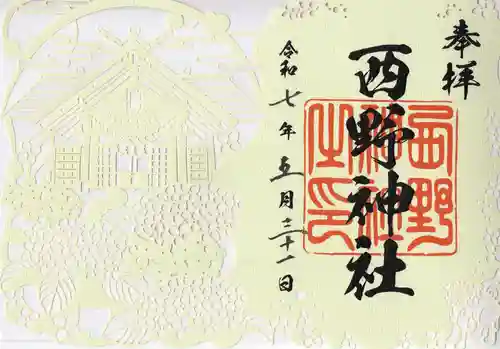 奉拝
西野神社
西野神社之印
令和七年五月三十一日